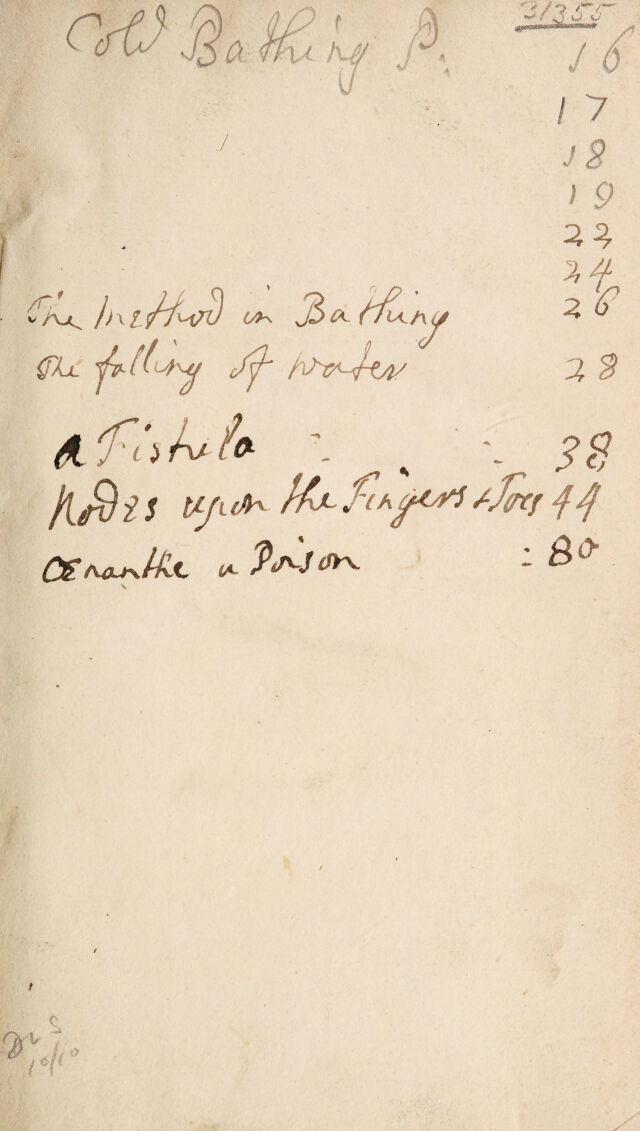 31355
Cold Bathing P: 16
17
18
19
22
24
The Method in Bathing 26
The falling of water 28
a Fistula - - 38
Nodes upon the Fingers & Toes 44
Œnanthe a Poison : 80
10/10